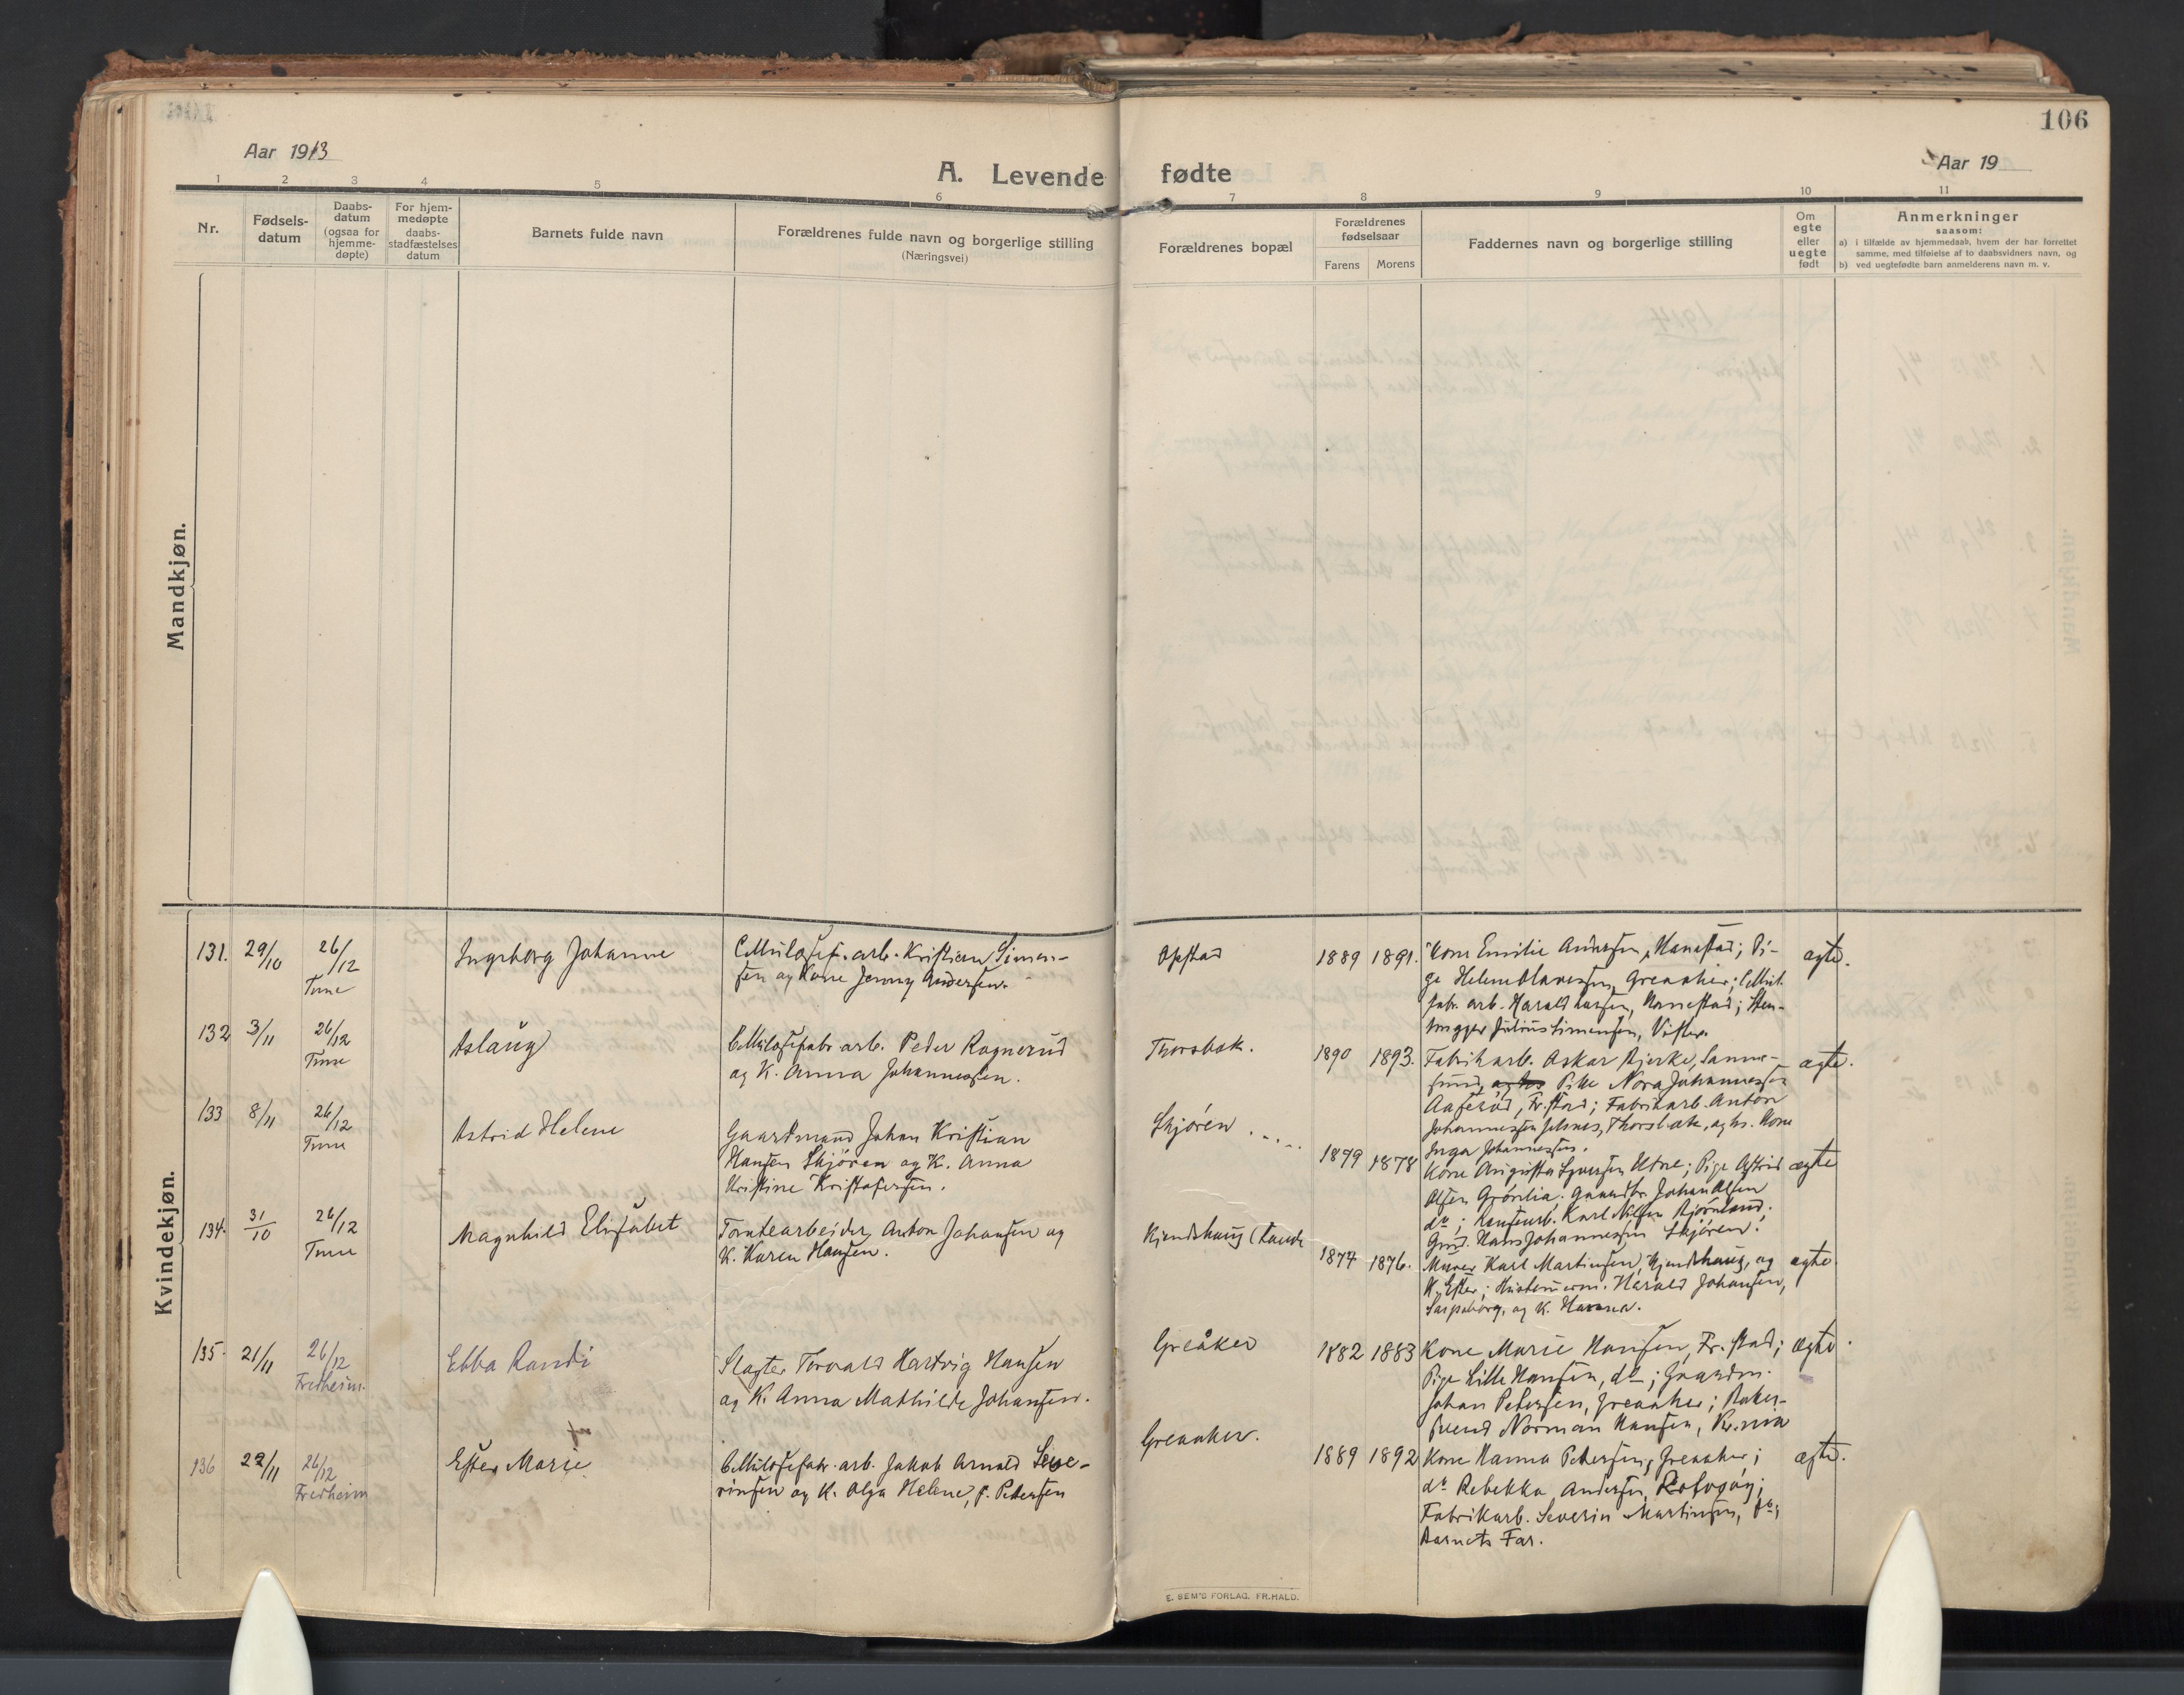 106
Aar 1913
Aar 19
A. Levende fødte
1 2 3 4 5 6 7 8 9 10 11
Nr.
Fødsels-
datum
Daabs-
datum
(ogsaa for
hjemme-
døpte)
For hjem-
medøpte
daabs-
stadfæstelses
datum
Barnets fulde navn
Forældrenes fulde navn og borgerlige stilling
(Næringsvei)
Forældrenes bopæl
Forældrenes
fødselsaar
Farens Morens
Faddernes navn og borgerlige stilling
Om
egte
eller
uegte
født
Anmerkninger
saasom:
a) i tilfælde av hjemmedaab, hvem der har forrettet
samme, med tilføielse af to daabsvidners navn, og
b) ved uegtefødte barn anmelderens navn m. v.
Mandkjøn.
Kvindekjøn.
131. 29/10 26/12
Tune
Ingeborg Johanne
Cellulosef. arb. Kristian Simen-
sen og Kone Jenny Andersen.
Opstad
1889 1891.
Kone Emilie Andersen, Hanestad; Pi-
ge Helene Olavesen, Greaaker; Cellul.
fabr. arb. Harald Larsen, Hanestad; Sten-
hugger Julius Simensen, Vister.
ægte.
132 3/11 26/12
Tune
Aslaug
Cellulosefabr. arb. Peder Ragnerud
og K. Anna Johannessen.
Thorsbæk.
1890 1893.
Fabrikarb. Askar Bjerke, Sanne-
sund, Pike Nora Johannessen
Fr.stad; Fabrikarb. Anton
Johannessen Thorsbæk, og hs. Kone
Inga Johannessen.
ægte.
133 8/11 26/12
Tune
Astrid Helene
Gaardmand Johan Kristian
Hansen Skjøren og K. Anna
Kristine Kristofersen.
Skjøren
1879 1878
Kone Augusta Syversen Utne; Pige Astrid
Olsen Grønlia. Gaardbr. Johan Olsen
do; Karl Nilsen Bjørnland;
Gmd. Hans Johannessen Skjøren.
ægte
134. 31/10 26/12
Tune
Magnhild Elisabet
Tomtearbeider Anton Johansen og
K. Karen Hansen.
Kjendshaug
1877 1876.
Murer Karl Martinsen, Kjendshaug, og
K. Ester; Harald Johansen,
Sarpsborg, og K. Hanna.
ægte.
135. 21/11 26/12
Fredheim.
Ebba Randi
Slagter Torvald Hartvig Hansen
og K. Anna Mathilde Johansen.
Greåker
1882 1883
Kone Marie Hansen, Fr.stad;
Pige Lilli Hansen, do; Gaardm.
Johan Petersen, Greaaker; Baker-
svend Norman Hansen, Kr.nia
ægte.
136 22/11 26/12
Fredheim
Ester Marie
Cellulosefabr. arb. Jakob Arnold Seve-
rinsen og K. Olga Helene, f. Petersen
Greaaker.
1889 1892
Kone Hanna Petersen, Greaaker;
do Rebekka Andersen, Rolvsøy;
Fabrikarb. Severin Martinsen, do;
Barnets Far.
ægte.
E. SEM'S FORLAG, FR.HALD.